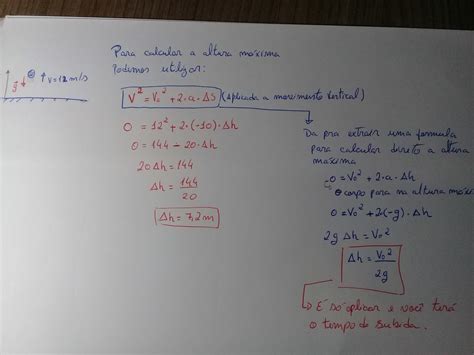 Para calcular a altura maxima
Podemos utilizar:
g ↓ ↑ v = 12 m/s
V² = V₀² + 2·a·ΔS (Aplicada a movimento vertical)
0 = 12² + 2·(-10)·Δh
0 = 144 - 20·Δh
20Δh = 144
Δh = 144/20
Δh = 7,2 m
Da pra extrair uma formula
para calcular direto a altura
maxima
0 = V₀² + 2·a·Δh
o corpo para na altura máx
0 = V₀² + 2(-g)·Δh
2g Δh = V₀²
Δh = V₀²/2g
É só aplicar e você terá
o tempo de subida.